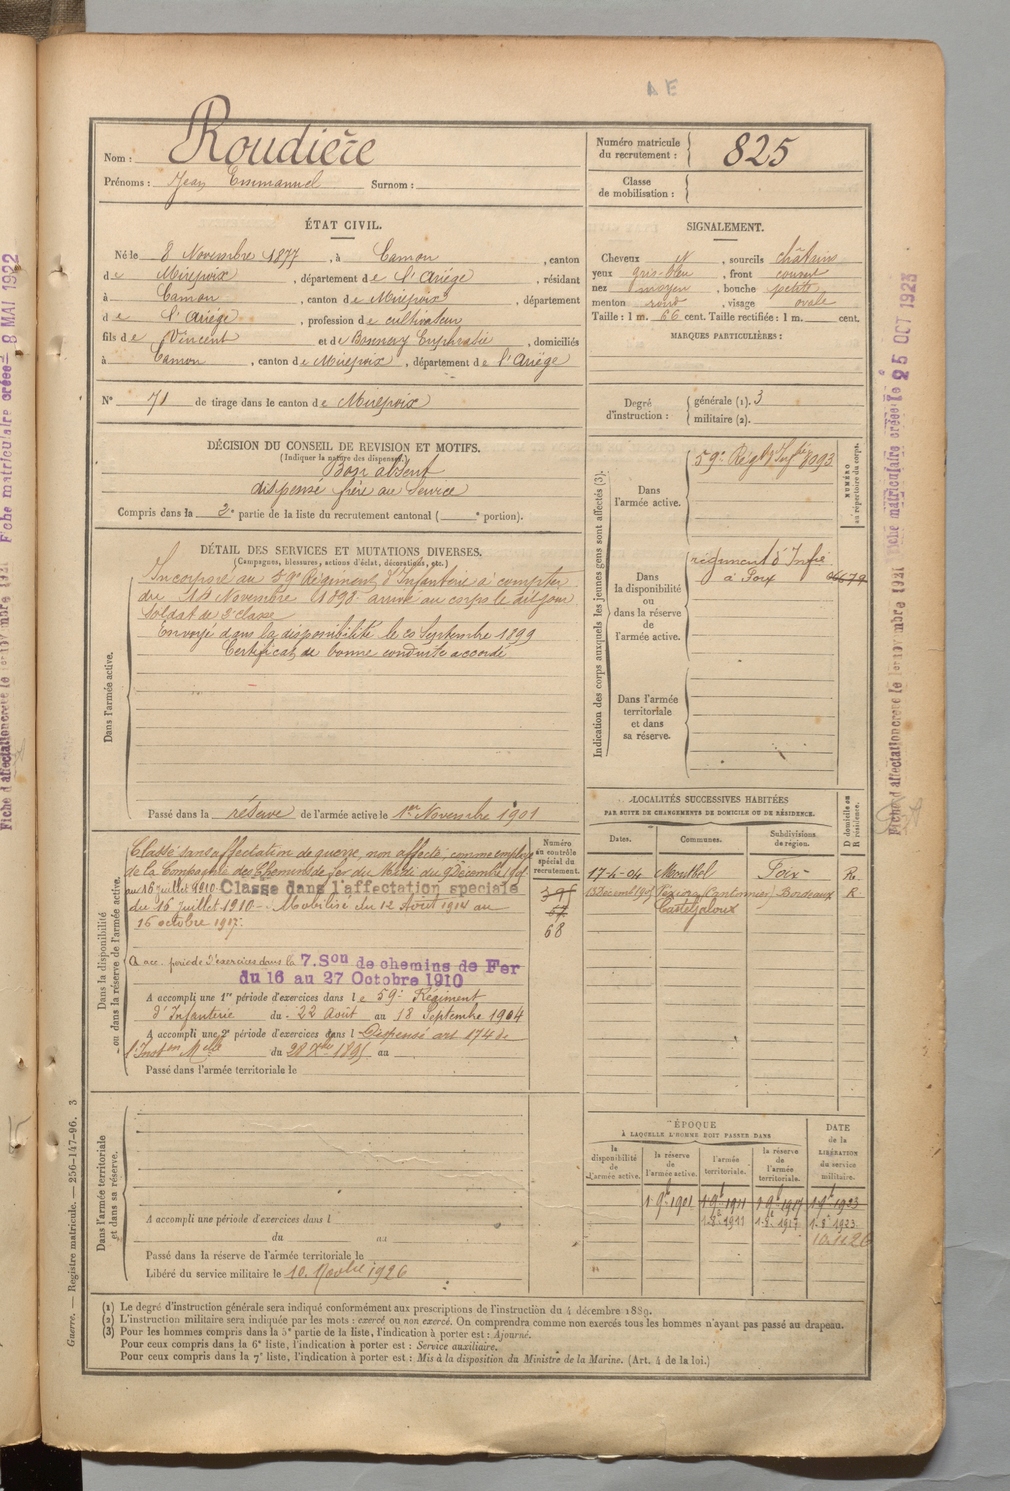 Roudière
Nom :
Prénoms : Jean Emmanuel Surnom :
Numéro matricule du recrutement : 825
Classe de mobilisation :
ÉTAT CIVIL.
Né le 8 Novembre 1877, à Camon, canton
de Mirepoix, département de l'Ariège, résidant
à Camon, canton de Mirepoix, département
de l'Ariège, profession de cultivateur
fils de Vincent et de Bonnery Euphrasie, domiciliés
à Camon, canton de Mirepoix, département de l'Ariège
N° 71 de tirage dans le canton de Mirepoix
SIGNALEMENT.
Cheveux N, sourcils châtains
yeux gris-bleu, front couvert
nez moyen, bouche petite
menton rond, visage ovale
Taille : 1 m. 66 cent. Taille rectifiée : 1 m. cent.
MARQUES PARTICULIÈRES :
Degré d'instruction : générale (1). 3
militaire (2).
DÉCISION DU CONSEIL DE REVISION ET MOTIFS.
(Indiquer la nature des dispenses.)
Bon absent
dispensé frère au service
Compris dans la 2e partie de la liste du recrutement cantonal ( e portion).
DÉTAIL DES SERVICES ET MUTATIONS DIVERSES.
(Campagnes, blessures, actions d'éclat, décorations, etc.)
Dans l'armée active.
Incorporé au 59e Régiment d'Infanterie à compter
du Novembre 1898 arrivé au corps le dit jour
soldat de 2e classe
Envoyé dans la disponibilité le 20 Septembre 1899
Certificat de bonne conduite accordé
Passé dans la réserve de l'armée active le 1er Novembre 1901
Indication des corps auxquels les jeunes gens sont affectés (3).
Dans l'armée active.
59e Régt d'Infie 8093
NUMÉRO au répertoire du corps.
Dans la disponibilité ou dans la réserve de l'armée active.
régiment d'Infie
à Foix
Dans l'armée territoriale et dans sa réserve.
LOCALITÉS SUCCESSIVES HABITÉES
PAR SUITE DE CHANGEMENTS DE DOMICILE OU DE RÉSIDENCE.
Dates. Communes. Subdivisions de région. D domicile ou R résidence.
17-4-04 Monthel Foix R
Bordeaux R
Casteljaloux
Dans la disponibilité ou dans la réserve de l'armée active.
Numéro au contrôle spécial du recrutement.
68
Classé sans affectation de guerre, non affecté, comme employé
de la Compagnie des Chemins de fer du Midi du 9 Décembre 1905
au 16 juillet 1910 Classé dans l'affectation spéciale
du 16 juillet 1910 Mobilisé du 12 Août 1914 au
16 octobre 1917.
A acc. période d'exercices dans la 7.Son de chemins de Fer
du 16 au 27 Octobre 1910
A accompli une 1re période d'exercices dans le 59e Régiment
d'Infanterie du 22 Août au 18 Septembre 1904
A accompli une 2e période d'exercices dans l Dispensé art 174 de
l'Inston Mlle du 28 au
Passé dans l'armée territoriale le
Dans l'armée territoriale et dans sa réserve.
A accompli une période d'exercices dans l
du au
Passé dans la réserve de l'armée territoriale le
Libéré du service militaire le 10 Novbre 1926
ÉPOQUE
À LAQUELLE L'HOMME DOIT PASSER DANS
la disponibilité de l'armée active. la réserve de l'armée active. l'armée territoriale. la réserve de l'armée territoriale. DATE de la LIBÉRATION du service militaire.
1 9bre 1901 1 9bre 1911 1 9bre 1917 1 9bre 1923
1.8.1911 1.8.1917 1.8.1923
10.11.26
(1) Le degré d'instruction générale sera indiqué conformément aux prescriptions de l'instruction du 4 décembre 1889.
(2) L'instruction militaire sera indiquée par les mots : exercé ou non exercé. On comprendra comme non exercés tous les hommes n'ayant pas passé au drapeau.
(3) Pour les hommes compris dans la 5e partie de la liste, l'indication à porter est : Ajourné.
Pour ceux compris dans la 6e liste, l'indication à porter est : Service auxiliaire.
Pour ceux compris dans la 7e liste, l'indication à porter est : Mis à la disposition du Ministre de la Marine. (Art. 4 de la loi.)
Guerre. — Registre matricule. — 256-147-96. 3
Fiche matriculaire créée le 8 MAI 1922
Fiche d'affectation créée le 1er novembre 1921
Fiche matriculaire créée le 25 OCT 1923
Fiche d'affectation créée le 1er novembre 1921